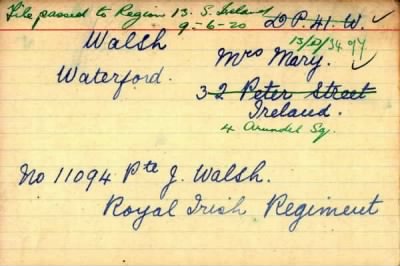 File passed to Region 13. S. Ireland
9-6-20
D.P. 41. W.
13/2/34
Walsh
Mrs Mary.
Waterford.
32 Peter Street
Ireland.
4 Arundel Sq.
No 11094 Pte J. Walsh.
Royal Irish Regiment